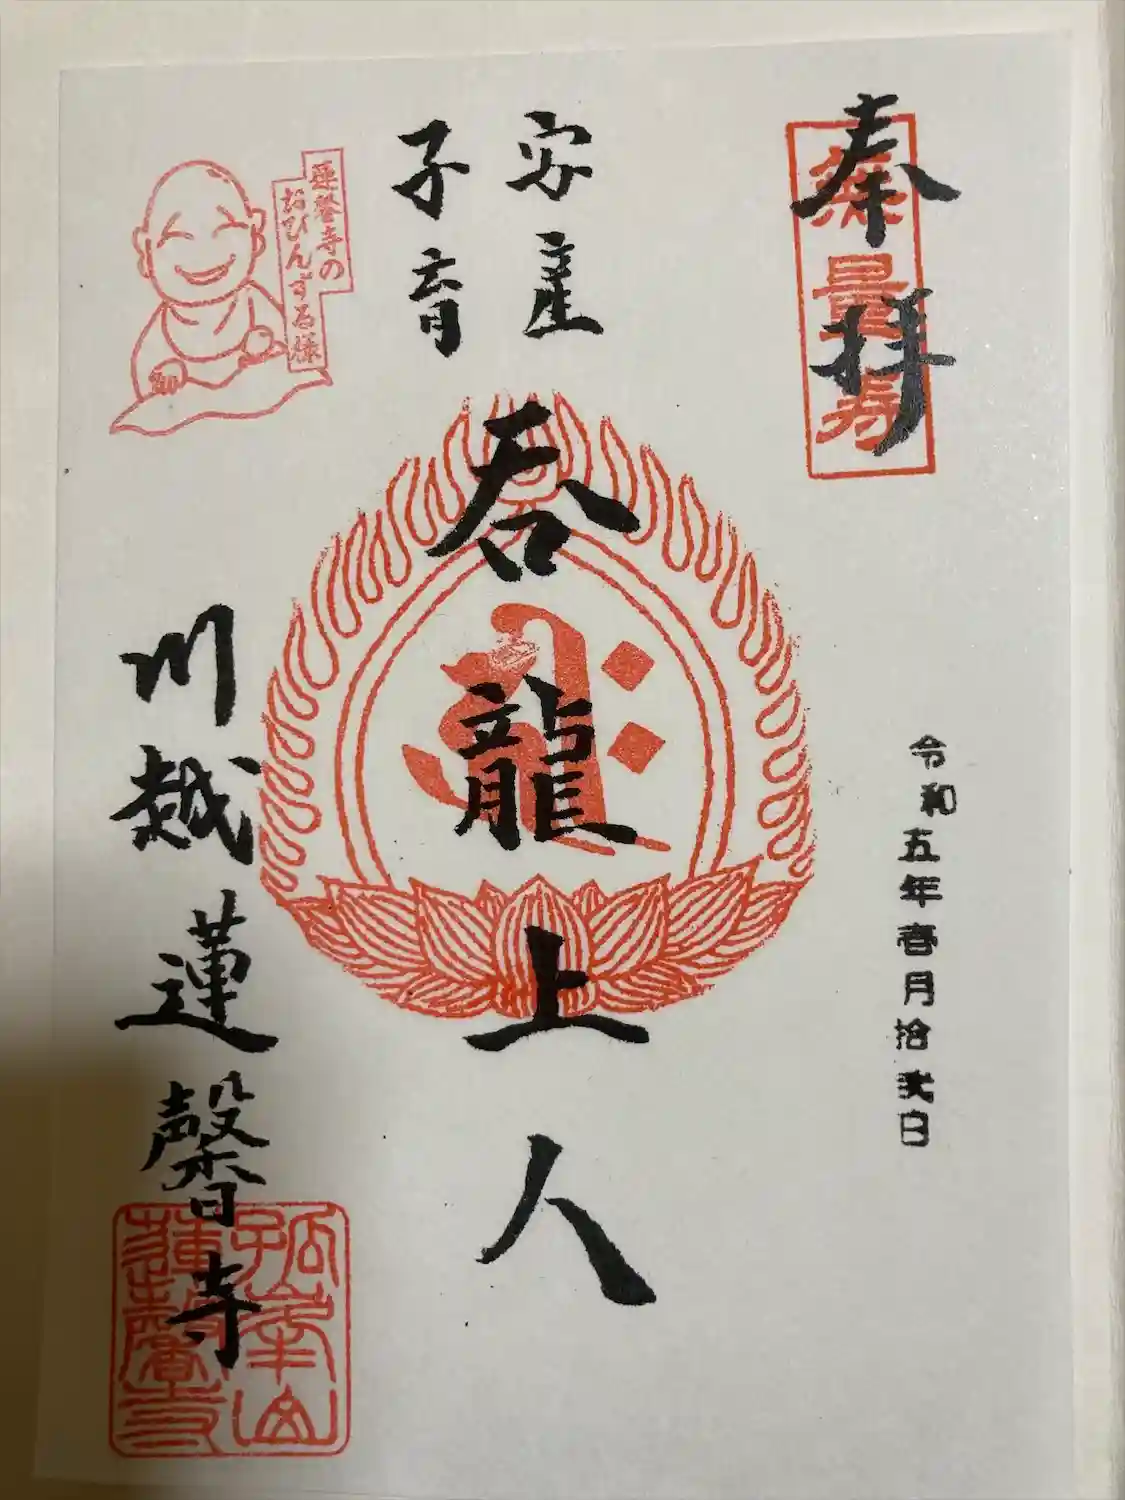 奉拝
無量寿
令和五年春月拾弐日
安産
子育
呑龍上人
蓮馨寺の
おびんずる様
川越蓮馨寺
孤峯山
蓮馨寺